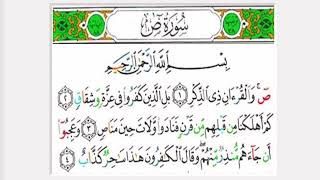 سورة ص
بسم الله الرحمن الرحيم
صٓ وَالْقُرْءَانِ ذِى الذِّكْرِ ١ بَلِ الَّذِينَ كَفَرُوا فِى عِزَّةٍ وَشِقَاقٍ ٢
كَمْ أَهْلَكْنَا مِن قَبْلِهِم مِّن قَرْنٍ فَنَادَوا وَّلَاتَ حِينَ مَنَاصٍ ٣ وَعَجِبُوا
أَن جَاءَهُم مُّنذِرٌ مِّنْهُمْ وَقَالَ الْكَٰفِرُونَ هَٰذَا سَٰحِرٌ كَذَّابٌ ٤